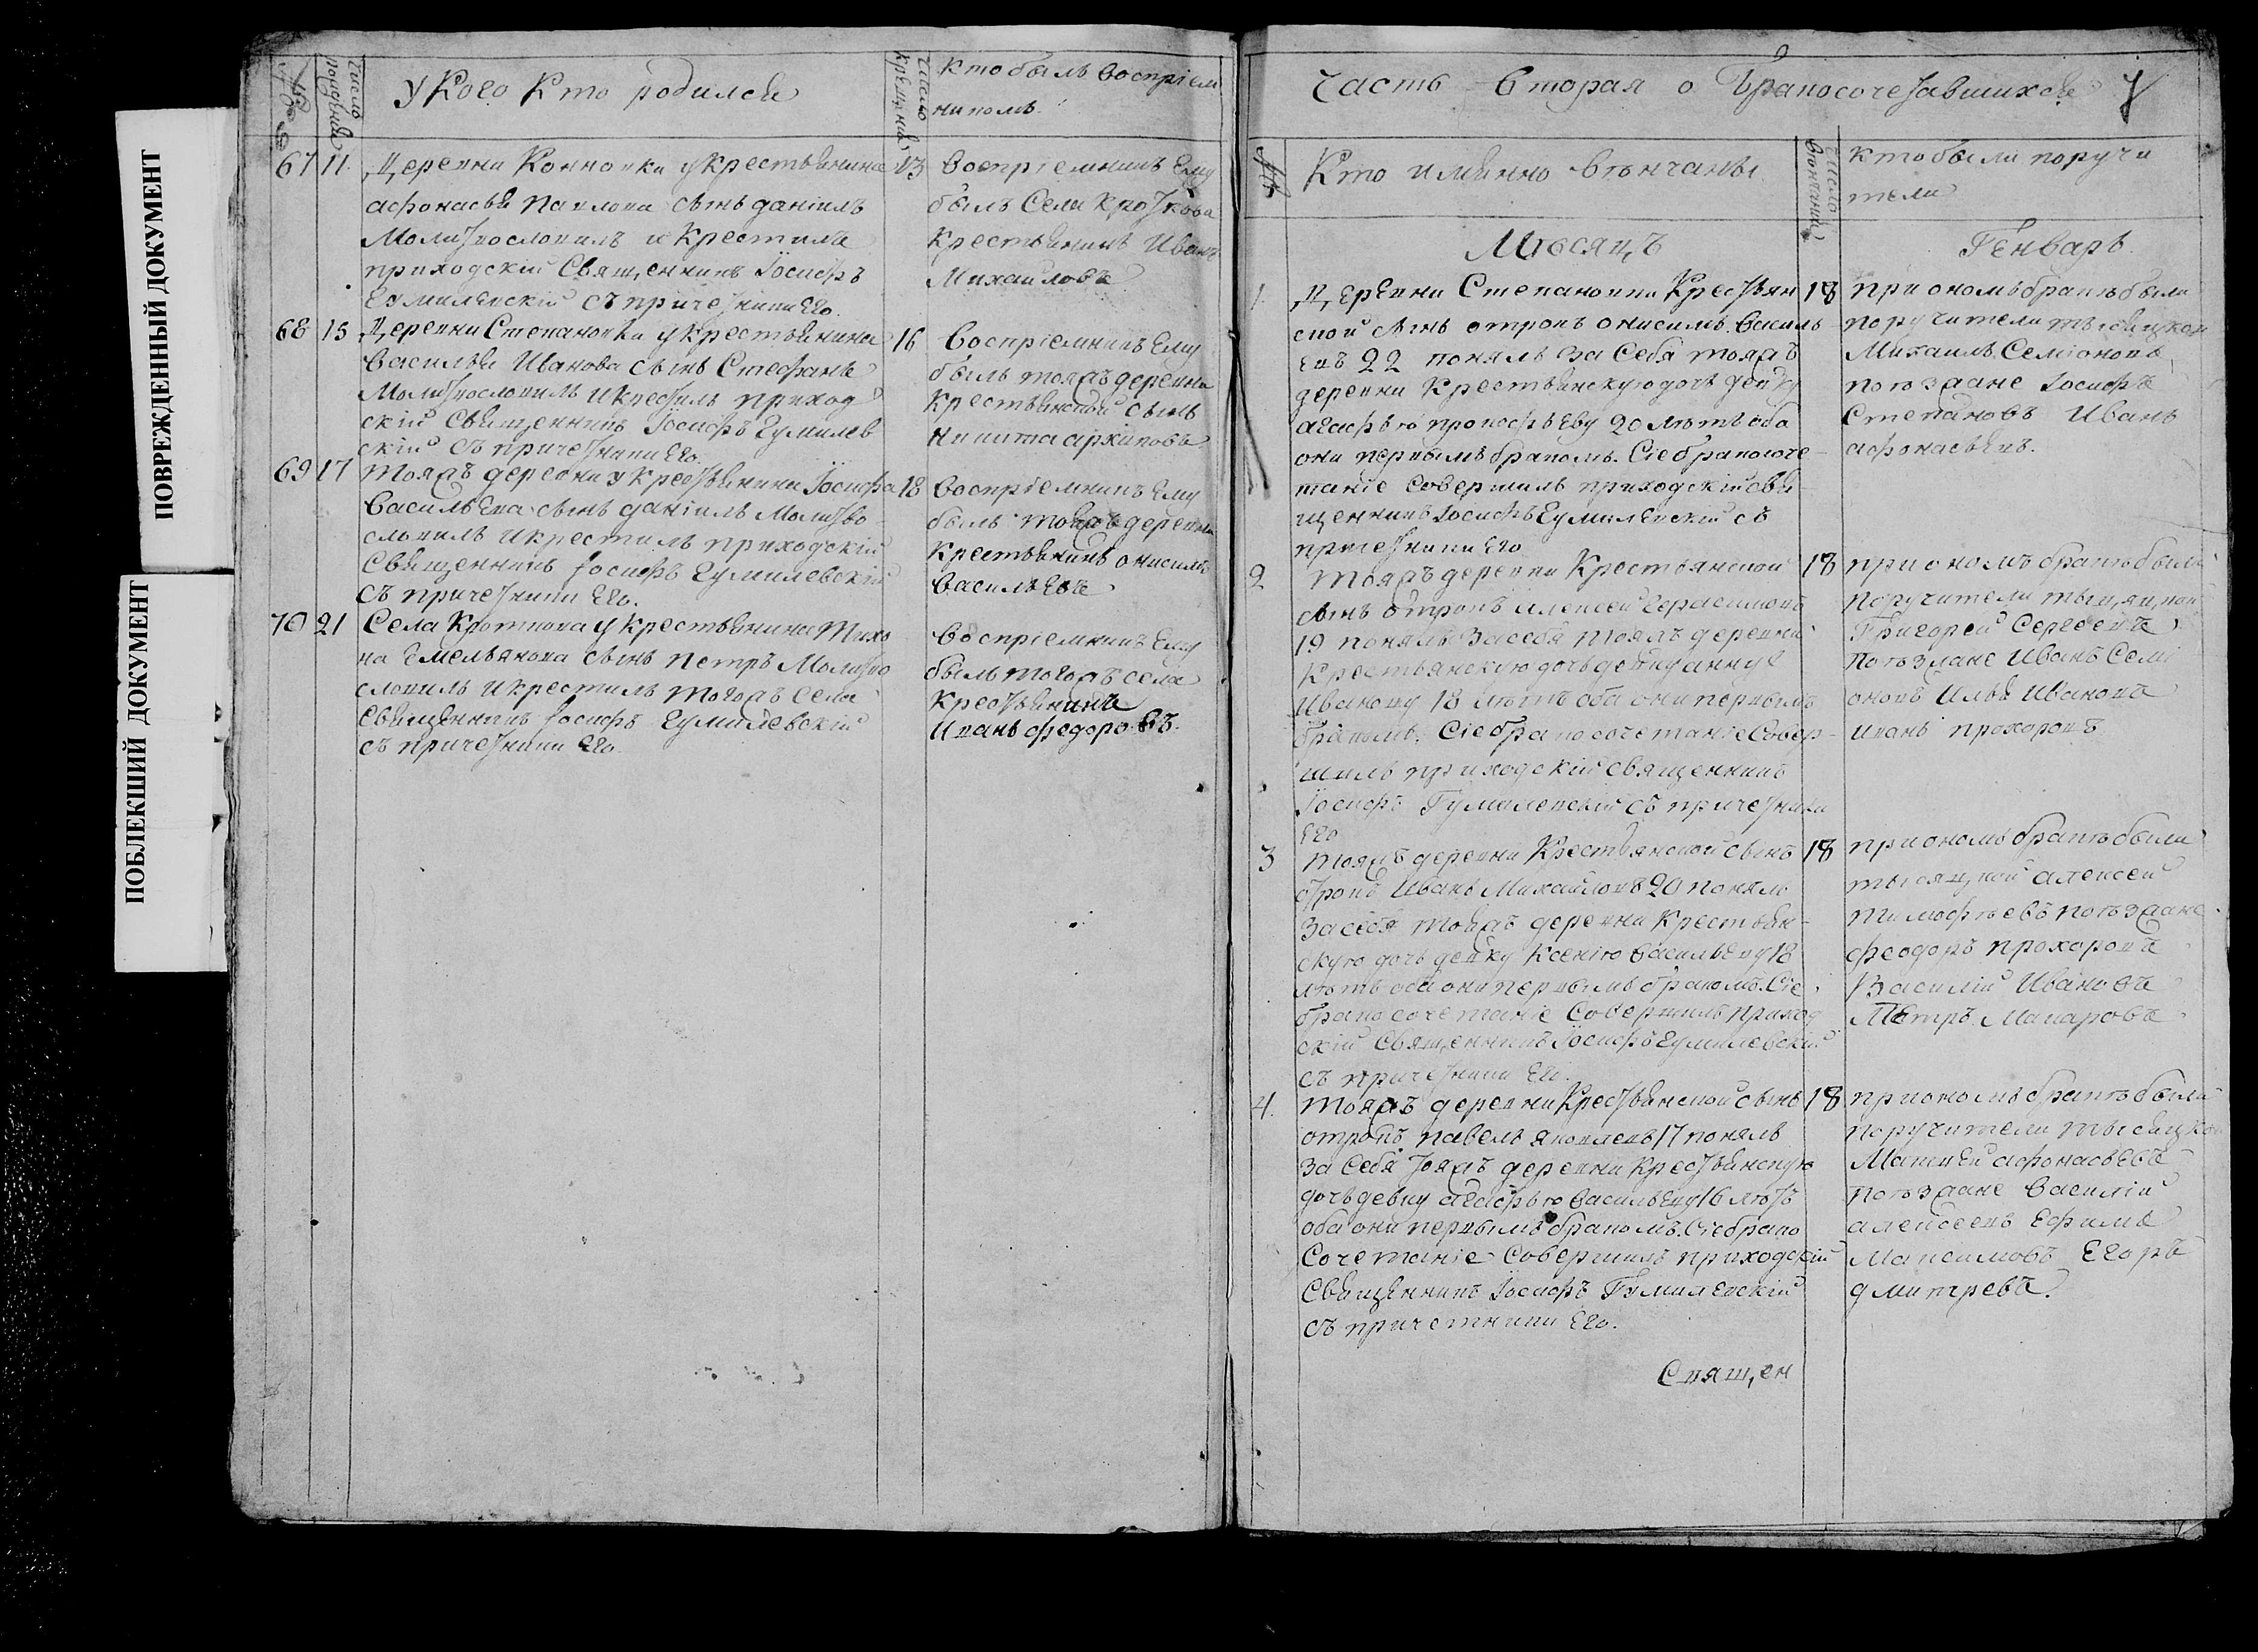 ПОВРЕЖДЕННЫЙ ДОКУМЕНТ
ПОБЛЕКШИЙ ДОКУМЕНТ
число рождения
у Кого Кто родился
число крещения
Кто былъ воспріем
никомъ.
67 11 Деревни у крестьянина 13
афонасья Павлова сынъ даніилъ
Молитвословилъ и Крестилъ
приходскій Священникъ Іосифъ
Гумилевскій съ причетники Его.
Воспріемникъ Ему
былъ Села
Крестьянинъ Иванъ
Михаиловъ
68 15 Деревни Степановки у крестьянина 16
Василья Иванова сынъ Стефанъ
Молитвословилъ и крестилъ приход
скій Священникъ Іосифъ Гумилев
скій съ причетники Его.
Воспріемникъ Ему
былъ тояжъ деревни
Крестьянской сынъ
Никита архиповъ
69 17 тояжъ деревни у крестьянина Іосифа 18
Васильева сынъ даніилъ Молитво
словилъ и крестилъ приходскій
Священникъ Іосифъ Гумилевскій
съ причетники Его.
Воспріемникъ Ему
былъ тояжъ деревни
Крестьянинъ онисимъ
Васильевъ
70 21 Села у крестьянина Тихо
на Емельянова сынъ Петръ Молитво
словилъ и крестилъ тогожъ села
Священникъ Іосифъ Гумилевскій
съ причетники Его.
Воспріемникъ Ему
былъ тогожъ села
Крестьянинъ
Иванъ федоровъ.
Часть вторая о бракосочетавшихся 7
№
Кто имянно вѣнчаны
число вѣнчания
Кто были поручи
тели
Мѣсяцъ
Генварь.
1. Деревни Степановки Крестьян 18
ской сынъ отрокъ онисимъ Василь
евъ 22 понялъ за Себя тояжъ
деревни Крестьянскую дочь девку
агафью прокофьеву 20 лѣтъ оба
они первымъ бракомъ. Сіе бракосоче
таніе Совершилъ приходскій свя
щенникъ Іосифъ Гумилевскій съ
причетники Его
при ономъ бракѣ были
поручители тысяцкой
Михаилъ Семіоновъ
поѣзжане Іосифъ
Степановъ Иванъ
афонасьевъ.
2 Тояжъ деревни Крестьянской 18
сынъ отрокъ алексей Герасимовъ
19 понялъ за себя тояжъ деревни
Крестьянскую дочь девку анну
Иванову 18 лѣтъ оба они первымъ
бракомъ. Сіе бракосочетаніе Совер
шилъ приходскій священникъ
Іосифъ Гумилевскій съ причетники
Его
при ономъ бракѣ были
поручители тысяцкой
Григорей Сергеевъ
поѣзжане Иванъ Семі
оновъ Илья Ивановъ
Иванъ прохоровъ
3 тояжъ деревни Крестьянской сынъ 18
отрокъ Иванъ Михайловъ 20 понялъ
за себя тояжъ деревни Крестьян
скую дочь девку Ксенію Васильеву 18
лѣтъ оба они первымъ бракомъ. Сіе
бракосочетаніе Совершилъ приход
скій Священникъ Іосифъ Гумилевскій
съ причетники Его.
при ономъ бракѣ были
тысяцкой алексей
тимофѣевъ поѣзжане
феодоръ прохоровъ
Василій Ивановъ
Петръ Макаровъ
4. тояжъ деревни Крестьянской сынъ 18
отрокъ павелъ яковлевъ 17 понялъ
за Себя тояжъ деревни Крестьянскую
дочь девку агафью Васильеву 16 лѣтъ
оба они первымъ бракомъ. Сіе брако
Сочетаніе Совершилъ приходскій
Священникъ Іосифъ Гумилевскій
съ причетники Его.
при ономъ бракѣ были
поручители тысяцкой
Матвей афонасьевъ
поѣзжане Василій
алексеевъ Ефимъ
Максимовъ Егоръ
дмитревъ.
Священ